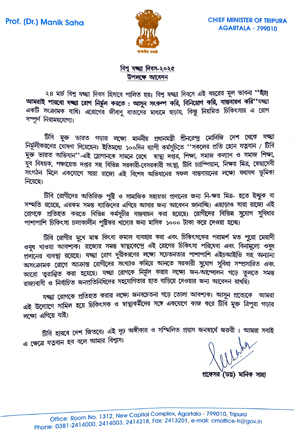 Prof. (Dr.) Manik Saha
CHIEF MINISTER OF TRIPURA
AGARTALA - 799010
বিশ্ব যক্ষ্মা দিবস-২০২৫
উপলক্ষে আবেদন
২৪ মার্চ বিশ্ব যক্ষ্মা দিবস হিসাবে পালিত হয়। বিশ্ব যক্ষ্মা দিবসে এই বছরের মূল ভাবনা "হ্যাঁ!
আমরাই পারবো যক্ষ্মা রোগ নির্মূল করতে : আসুন সংকল্প করি, বিনিয়োগ করি, বাস্তবায়ন করি"
একটি সংক্রামক ব্যাধি। এরোগের জীবাণু বাতাসের মাধ্যমে ছড়ায়, কিন্তু নিয়মিত চিকিৎসায় এ রোগ
সম্পূর্ণ নিরাময়যোগ্য।
টিবি মুক্ত ভারত গড়ার লক্ষ্যে মাননীয় প্রধানমন্ত্রী শ্রীনরেন্দ্র মোদিজি দেশ থেকে যক্ষ্মা
মুক্ত ভারত অভিযান"-এই স্লোগানকে সামনে রেখে স্বাস্থ্য দপ্তর, শিক্ষা, সমাজ কল্যাণ ও সমাজ শিক্ষা,
যুব বিষয়ক, পঞ্চায়েত দপ্তর সহ বিভিন্ন সরকারী-বেসরকারী সংস্থা, টিবি চ্যাম্পিয়ান, নিক্ষয় মিত্র, স্বেচ্ছাসেবী
সংগঠন মিলে একযোগে সারা রাজ্যে এই বিশেষ অভিযানের সফল বাস্তবায়নের লক্ষ্যে যথাযথ ভূমিকা
নিয়েছে।
টিবি রোগীদের অতিরিক্ত পুষ্টি ও সামাজিক সহায়তা প্রদানের জন্য নি-ক্ষয় মিত্র- হতে ইচ্ছুক বা
সম্মতি রয়েছে, এরকম সমস্ত ব্যক্তিদের এগিয়ে আসার জন্য আবেদন জানাচ্ছি। এছাড়াও সারা রাজ্যে এই
রোগকে প্রতিহত করতে বিভিন্ন কর্মসূচীর বাস্তবায়ন করা হয়েছে। রোগীদের বিভিন্ন সুযোগ সুবিধার
পাশাপাশি চিকিৎসা চলাকালীন পুষ্টিকর খাদ্যের জন্য মাসিক ১০০০ টাকা করে দেওয়া হচ্ছে।
টিবি রোগীর মুখে মাস্ক কিংবা রুমাল ব্যবহার করা এবং চিকিৎসকের পরামর্শ মত পুরো মেয়াদী
ওষুধ খাওয়া আবশ্যক। রাজ্যের সমস্ত স্বাস্থ্যকেন্দ্রে এই রোগের চিকিৎসা পরিষেবা এবং বিনামূল্যে ওষুধ
প্রদানের ব্যবস্থা রয়েছে। যক্ষ্মা রোগ দূরীকরণের লক্ষ্যে সচেতনতার পাশাপাশি এইচআইভি সহ অন্যান্য
আরো ত্বরান্বিত করা হয়েছে। যক্ষ্মা রোগকে নির্মূল করার লক্ষ্যে জন-আন্দোলন গড়ে তুলতে সমস্ত
রাজ্যবাসী ও নির্বাচিত জনপ্রতিনিধিদের সহযোগিতার হাত বাড়িয়ে দেওয়ার জন্য আবেদন রাখছি।
যক্ষ্মা রোগকে প্রতিহত করার লক্ষ্যে জনসচেতনা গড়ে তোলা আবশ্যক। আসুন প্রত্যেকে আমরা
এই উদ্যোগে সামিল হয়ে চিকিৎসক ও স্বাস্থ্যকর্মীদের সঙ্গে একযোগে কাজ করে টিবি মুক্ত ত্রিপুরা গড়ার
লক্ষ্যে এগিয়ে যাই।
টিবি হারবে দেশ জিতবে। এই দৃঢ় অঙ্গীকার ও সম্মিলিত প্রয়াস জনস্বার্থে জরুরী। আমরা সবাই
এ ক্ষেত্রে যত্নবান হব বলে আমার বিশ্বাস।
প্রফেসর (ডাঃ) মানিক সাহা
Office: Room No. 1312, New Capital Complex, Agartala - 799010, Tripura
Phone: 0381-2414000, 2414003, 2414318, Fax: 2413201, e-mail: cmoffice-tr@gov.in